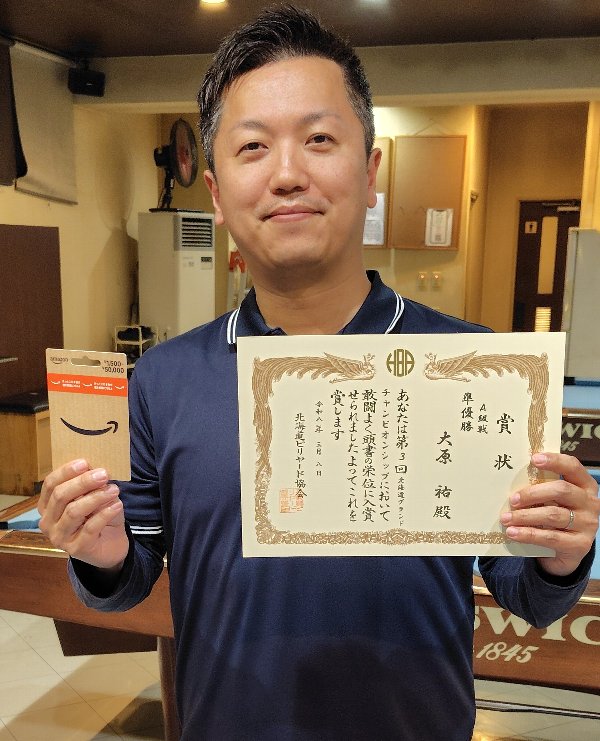 amazon
¥1,500
~
¥50,000
HBA
賞状
A級戦
準優勝
大原 祐 殿
あなたは第3回 北海道グランド
チャンピオンシップにおいて
敢闘よく頭書の栄位に入賞
せられましたよってこれを
賞します
令和八年 三月 八日
北海道ビリヤード協会
SWIC
1845
1845